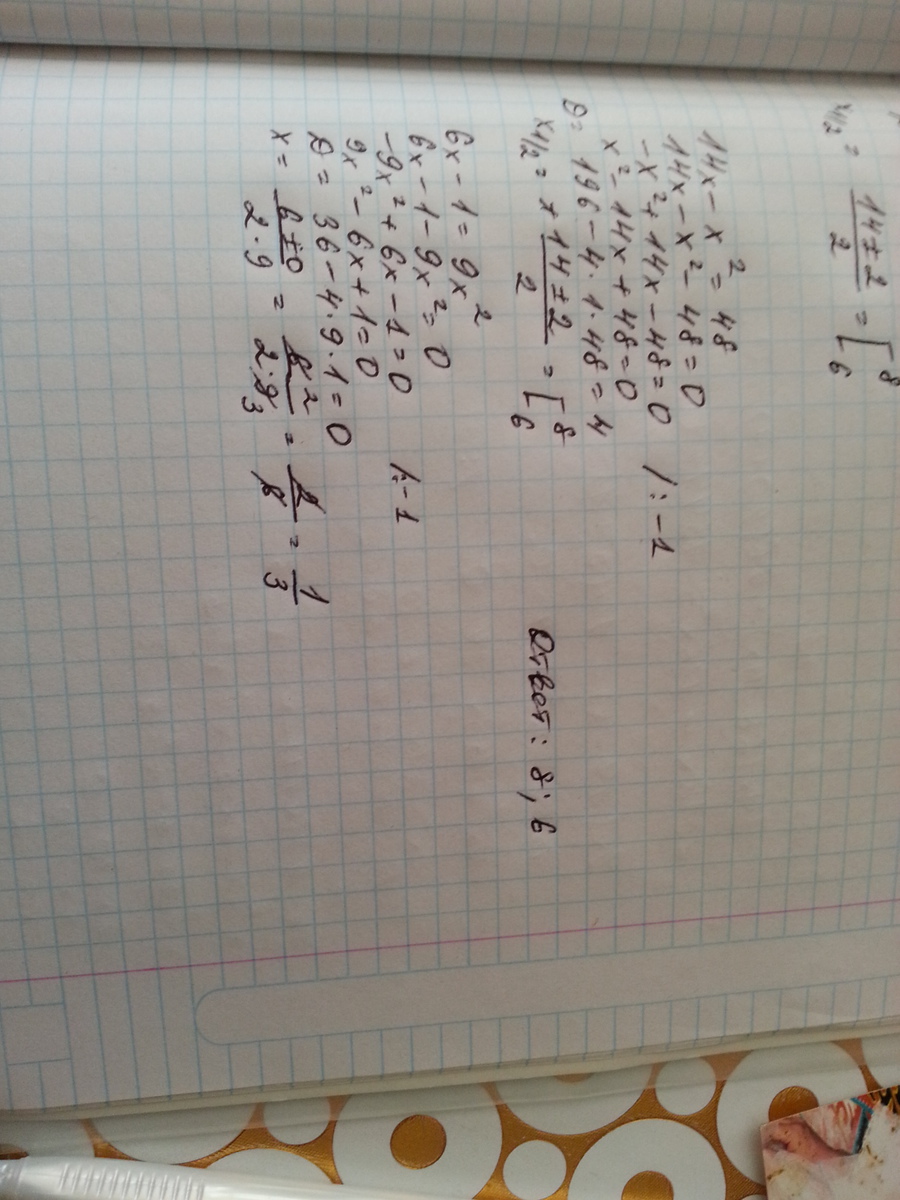 x1/2 = 14±2/2 = [8 6
14x - x² = 48
14x - x² - 48 = 0
-x² + 14x - 48 = 0 /: -1
x² - 14x + 48 = 0
D = 196 - 4·1·48 = 4
x1/2 = +14±2/2 = [8 6 Ответ: 8; 6
6x - 1 = 9x²
6x - 1 - 9x² = 0
-9x² + 6x - 1 = 0 /: -1
9x² - 6x + 1 = 0
D = 36 - 4·9·1 = 0
x = 6±0/2·9 = 6 2/2·9 3 = 2/6 = 1/3